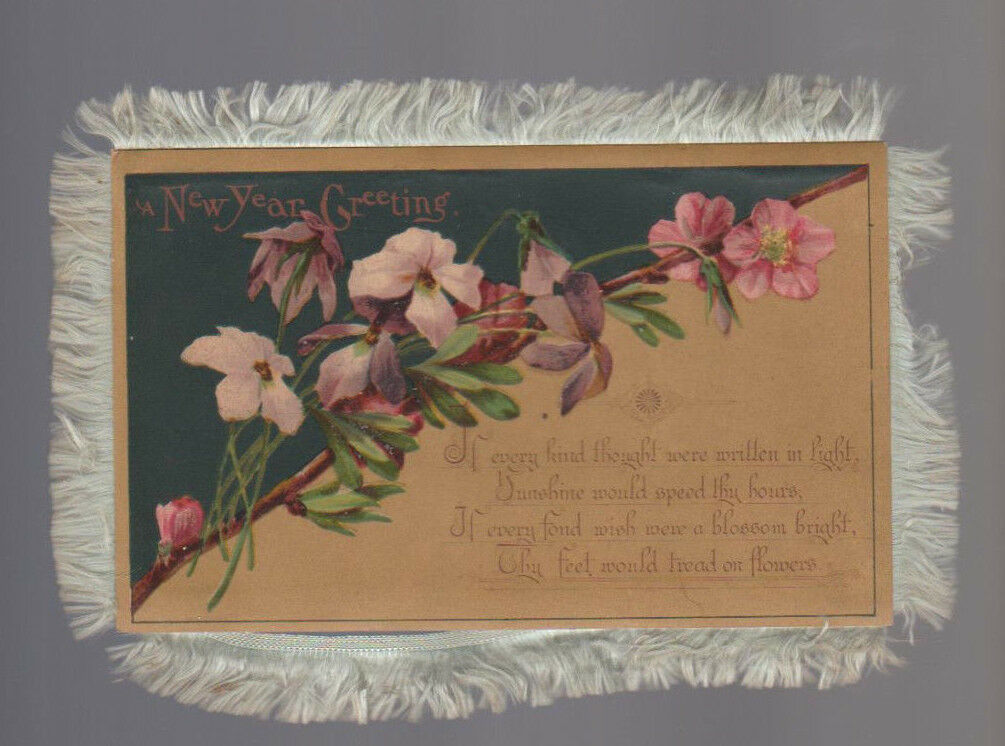 A New Year Greeting.
If every kind thought were written in light,
Sunshine would speed thy hours;
If every fond wish were a blossom bright,
Thy feet would tread on flowers.